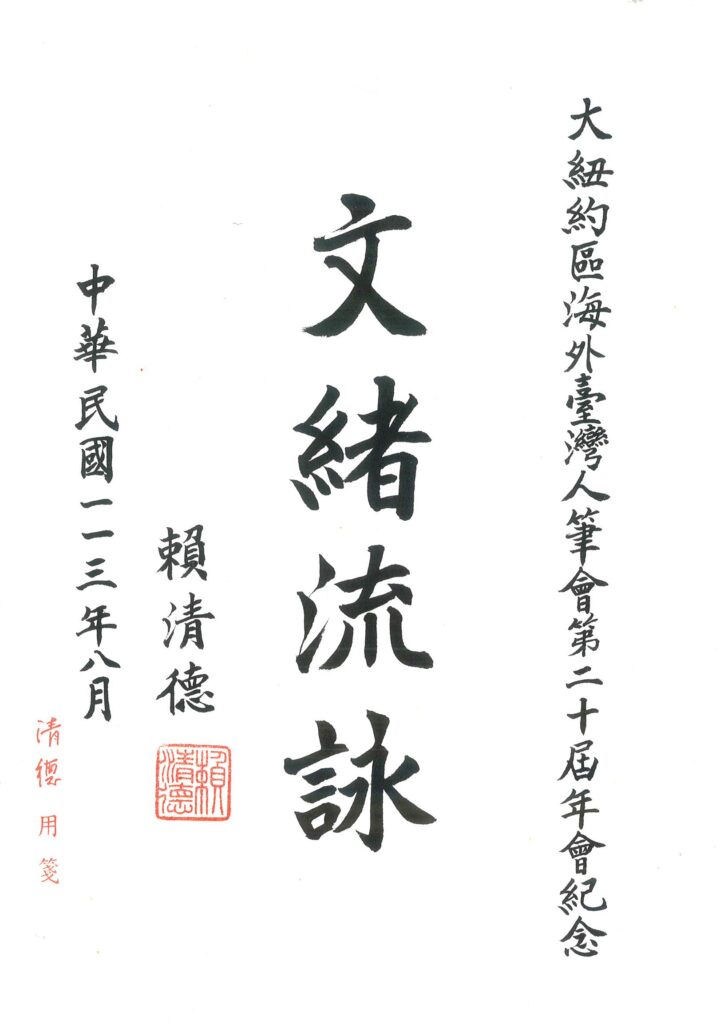 大紐約區海外臺灣人筆會第二十屆年會紀念
文緒流詠
賴清德
賴清德
中華民國一一三年八月
清德用箋